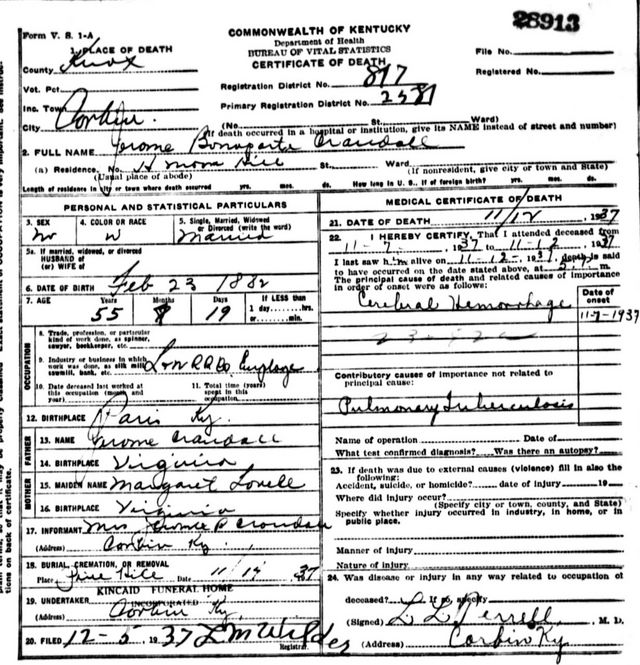 28913
Form V. S. 1-A
COMMONWEALTH OF KENTUCKY
Department of Health
BUREAU OF VITAL STATISTICS
CERTIFICATE OF DEATH
File No.
Registered No.
1. PLACE OF DEATH
County Knox
Vot. Pct.
Inc. Town Corbin.
City
Registration District No. 817
Primary Registration District No.
(No. St. Ward)
(If death occurred in a hospital or institution, give its NAME instead of street and number)
2. FULL NAME Jerome Bonaparte Crandall
(a) Residence. No. St. Ward.
(Usual place of abode) (If nonresident, give city or town and State)
Length of residence in city or town where death occurred yrs. mos. ds. How long in U. S., if of foreign birth? yrs. mos. ds.
PERSONAL AND STATISTICAL PARTICULARS
3. SEX
4. COLOR OR RACE W
5. Single, Married, Widowed or Divorced (write the word) Married
5a. If married, widowed, or divorced
HUSBAND of
(or) WIFE of
6. DATE OF BIRTH Feb 23 1882
7. AGE Years 55 Months Days 19 If LESS than 1 day hrs. or min.
OCCUPATION
8. Trade, profession, or particular kind of work done, as spinner, sawyer, bookkeeper, etc.
9. Industry or business in which work was done, as silk mill, sawmill, bank, etc. L & N RR Co Employee
10. Date deceased last worked at this occupation (month and year)
11. Total time (years) spent in this occupation
12. BIRTHPLACE Paris Ky.
FATHER
13. NAME Jerome Crandall
14. BIRTHPLACE Virginia
MOTHER
15. MAIDEN NAME Margaret Lovell
16. BIRTHPLACE Virginia
17. INFORMANT Mrs Jerome B Crandall
(Address) Corbin Ky.
18. BURIAL, CREMATION, OR REMOVAL
Place Pine Hill Date 11/14 37
KINCAID FUNERAL HOME
INCORPORATED
19. UNDERTAKER
Corbin Ky.
20. FILED 12-5 1937 L M Wilder
Registrar.
MEDICAL CERTIFICATE OF DEATH
21. DATE OF DEATH 11/12 1937
22. I HEREBY CERTIFY, That I attended deceased from
11-7, 1937 to 11-12, 1937
I last saw him alive on 11-12-, 1937, death is said
to have occurred on the date stated above, at 5 m.
The principal cause of death and related causes of importance
in order of onset were as follows:
Date of onset
Cerebral Hemorrhage 11-7-1937
Contributory causes of importance not related to
principal cause:
Pulmonary Tuberculosis
Name of operation Date of
What test confirmed diagnosis? Was there an autopsy?
23. If death was due to external causes (violence) fill in also the
following:
Accident, suicide, or homicide? date of injury 19
Where did injury occur?
(Specify city or town, county, and State)
Specify whether injury occurred in industry, in home, or in
public place.
Manner of injury
Nature of injury
24. Was disease or injury in any way related to occupation of
deceased? If so, specify
(Signed) L L Terrell, M. D.
(Address) Corbin Ky